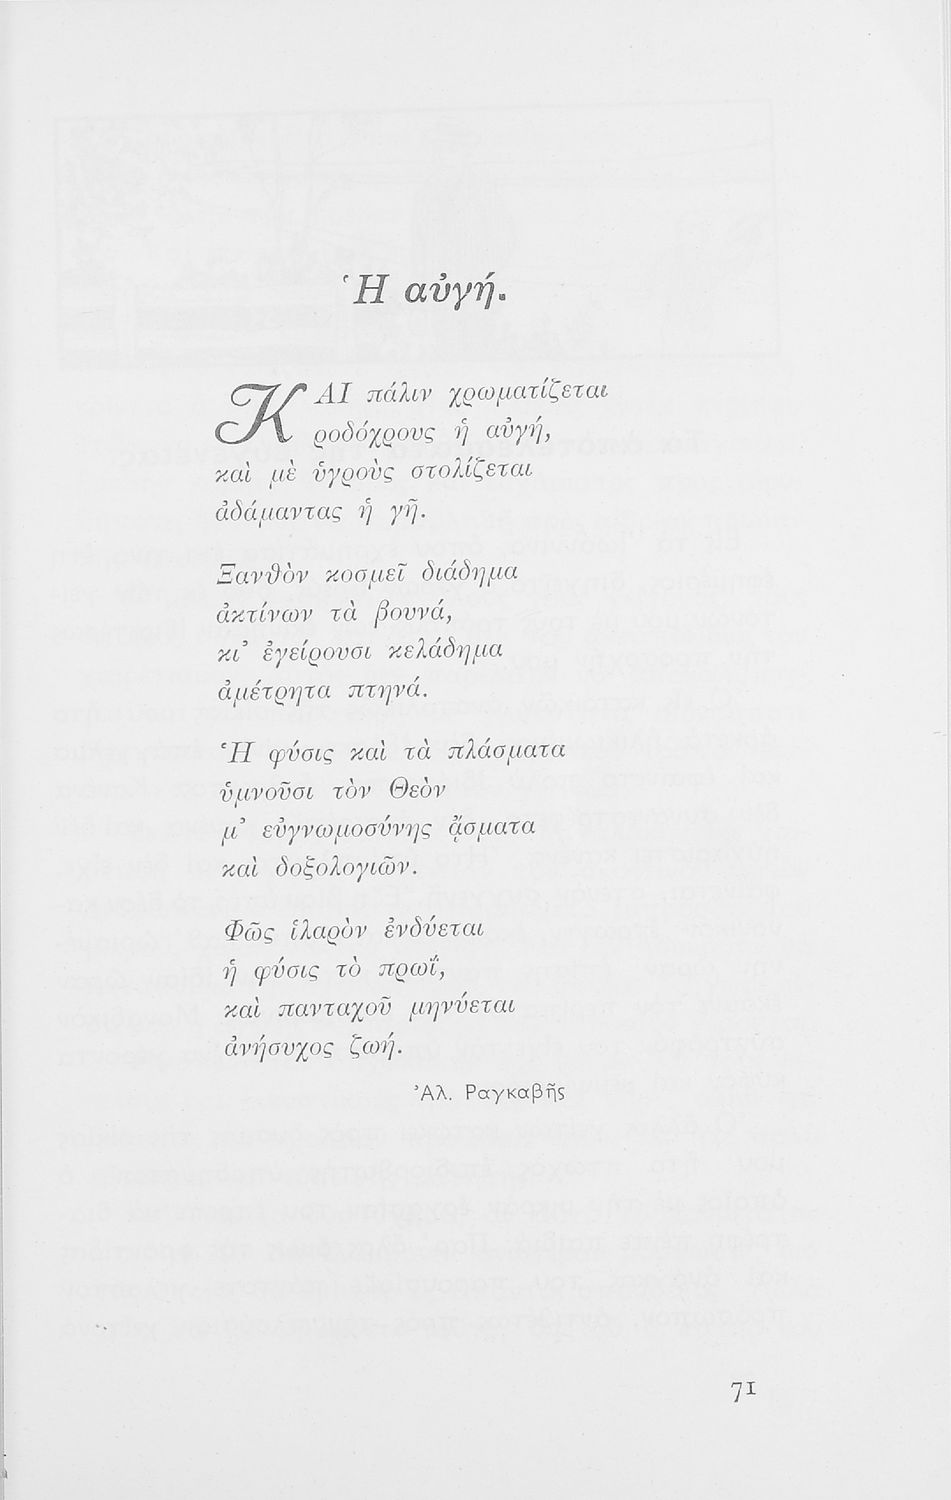 Ἡ αὐγή.
ΚΑΙ πάλιν χρωματίζεται
ροδόχρους ἡ αὐγή,
καὶ μὲ ὑγροὺς στολίζεται
ἀδάμαντας ἡ γῆ.
Ξανθὸν κοσμεῖ διάδημα
ἀκτίνων τὰ βουνά,
κι’ ἐγείρουσι κελάδημα
ἀμέτρητα πτηνά.
Ἡ φύσις καὶ τὰ πλάσματα
ὑμνοῦσι τὸν Θεὸν
μ’ εὐγνωμοσύνης ᾄσματα
καὶ δοξολογιῶν.
Φῶς ἱλαρὸν ἐνδύεται
ἡ φύσις τὸ πρωΐ,
καὶ πανταχοῦ μηνύεται
ἀνήσυχος ζωή.
Ἀλ. Ραγκαβῆς
71